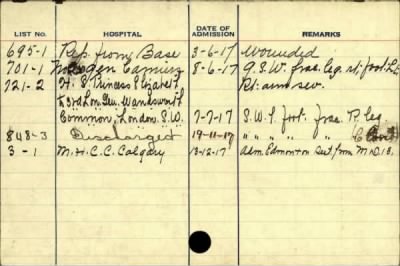 LIST No. HOSPITAL DATE OF ADMISSION REMARKS
695-1 Rep. from Base 3-6-17 Wounded
701-1 Gen Camiers 8-6-17 G.S.W. frac. leg. rt. foot
721-2 H.S. Princess Elizabeth Rt. arm sev.
3rd Lon. Gen. Wandsworth
Common, London. S.W. 7-7-17 S.W. foot. frac. R. leg
848-3 Discharged 19-11-17 " " " "
3-1 M.H.C.C. Calgary 13-12-17 Adm. Edmonton from M.D.13.